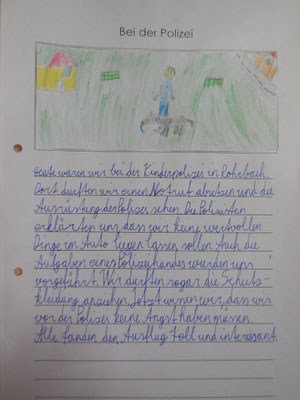 Bei der Polizei
Heute waren wir bei der Kinderpolizei in Lohsbach.
Dort durften wir einen Notruf absetzen und die
Ausrüstung der Polizei sehen. Die Polizisten
erklärten uns, dass wir keine wertvollen
Dinge im Auto liegen lassen sollen. Auch die
Aufgaben eines Polizeihundes wurden uns
vorgeführt. Wir durften sogar die Schutz-
kleidung anziehen. Jetzt wissen wir, dass wir
vor der Polizei keine Angst haben müssen.
Alle fanden den Ausflug toll und interessant.